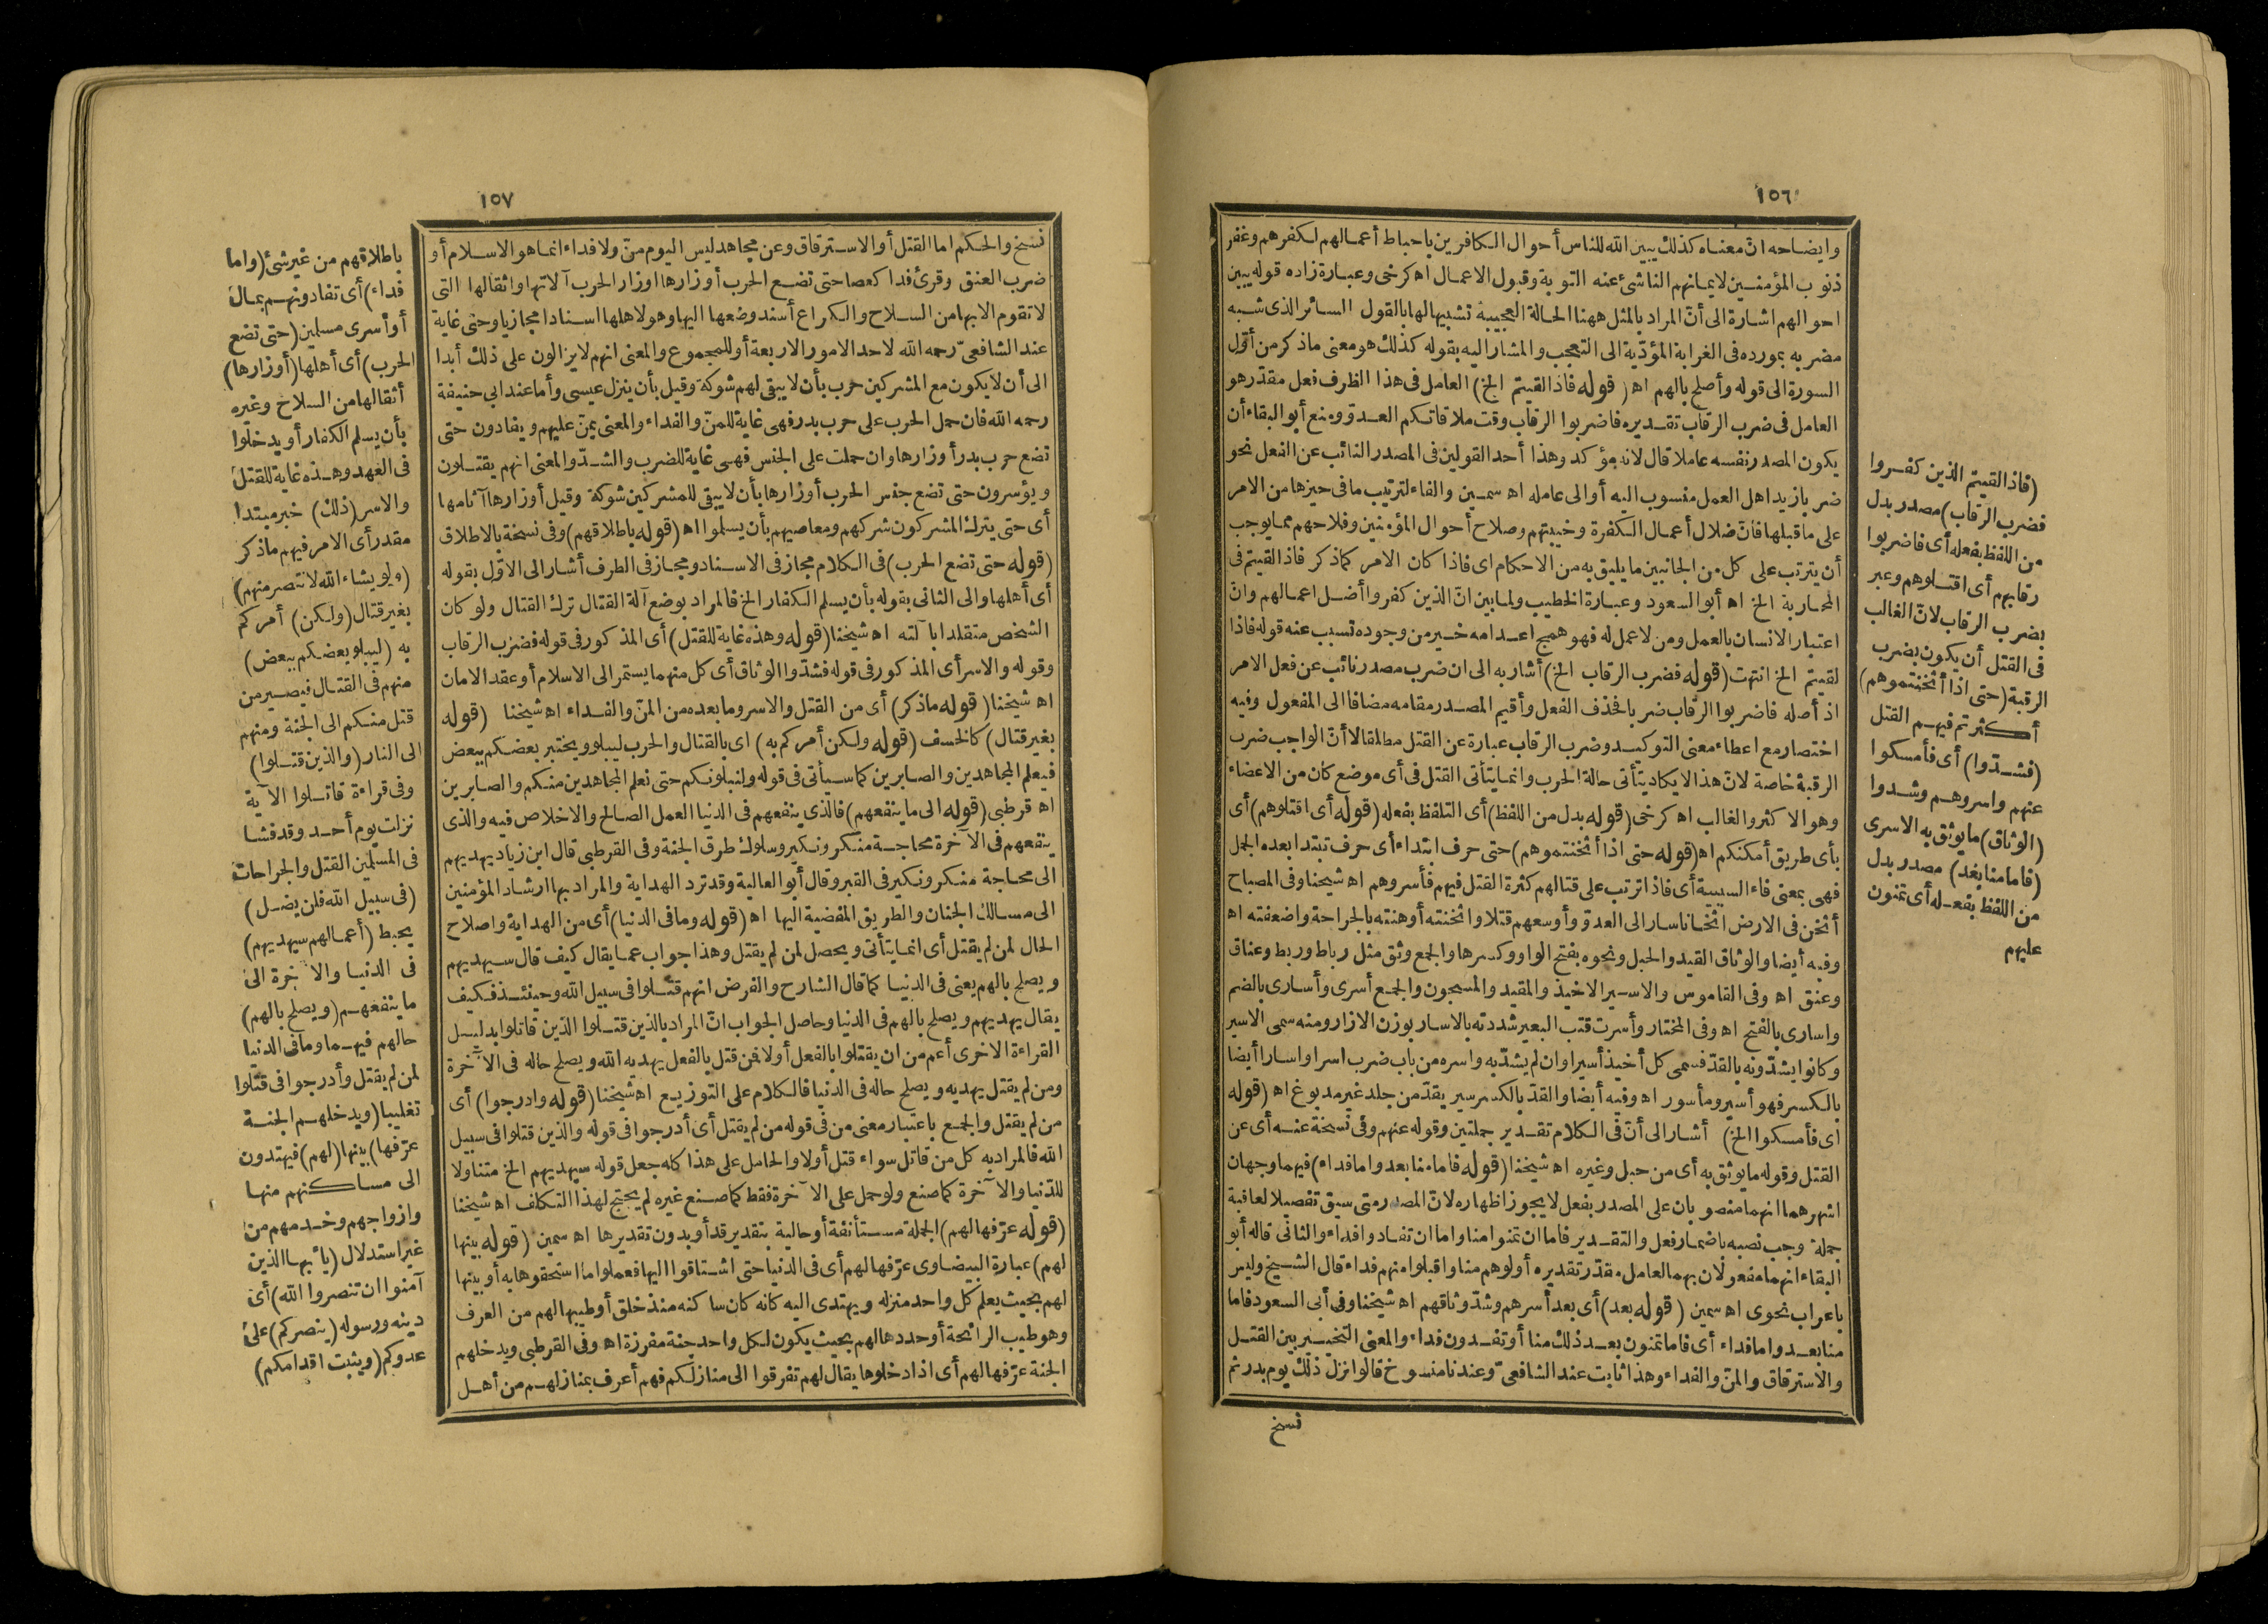 ١٥٦
وايضاحه انّ معناه كذلك يبين الله للناس أحوال الكافرين باحباط أعمالهم لكفرهم وغفر
ذنوب المؤمنين لايمانهم الناشئ عنه التوبة وقبول الاعمال اه كرخى وعبارة زاده قوله يبين
احوالهم اشارة الى أنّ المراد بالمثل ههنا الحالة العجيبة تشبيها لها بالقول السائر الذى شبه
مضربه بمورده فى الغرابة المؤدّية الى التعجب والمشار اليه بقوله كذلك هو معنى ماذكر من أوّل
السورة الى قوله وأصلح بالهم اه (قوله فاذا لقيتم الخ) العامل فى هذا الظرف فعل مقدّر هو
العامل فى ضرب الرقاب تقديره فاضربوا الرقاب وقت ملاقاتكم العدوّ ومنع أبو البقاء أن
يكون المصدر نفسه عاملا قال لانه مؤكد وهذا أحد القولين فى المصدر النائب عن الفعل نحو
ضربا زيدا هل العمل منسوب اليه أو الى عامله اه سمين والفاء لترتيب ما فى حيزها من الامر
على ما قبلها فانّ ضلال أعمال الكفرة وخيبتهم وصلاح أحوال المؤمنين وفلاحهم مما يوجب
أن يترتب على كل من الجانبين ما يليق به من الاحكام اى فاذا كان الامر كما ذكر فاذا لقيتم فى
المحاربة الخ اه أبو السعود وعبارة الخطيب ولما بين انّ الذين كفروا أضل اعمالهم وان
اعتبار الانسان بالعمل ومن لاعمل له فهو همج اعدامه خير من وجوده تسبب عنه قوله فاذا
لقيتم الخ انتهت (قوله فضرب الرقاب الخ) أشار به الى ان ضرب مصدر نائب عن فعل الامر
اذ أصله فاضربوا الرقاب ضربا فحذف الفعل وأقيم المصدر مقامه مضافا الى المفعول وفيه
اختصار مع اعطاء معنى التوكيد وضرب الرقاب عبارة عن القتل مطلقا لا أنّ الواجب ضرب
الرقبة خاصة لانّ هذا لا يكاد يتأتى حالة الحرب وانما يتأتى القتل فى أى موضع كان من الاعضاء
وهو الاكثر والغالب اه كرخى (قوله بدل من اللفظ) أى التلفظ بفعله (قوله أى اقتلوهم) أى
بأى طريق أمكنكم اه (قوله حتى اذا أثخنتموهم) حتى حرف ابتداء أى حرف تبتدا بعده الجمل
فهى بمعنى فاء السببية أى فاذا ترتب على قتالهم كثرة القتل فيهم فأسروهم اه شيخنا وفى المصباح
أثخن فى الارض اثخانا سار الى العدوّ وأوسعهم قتلا واثخنته أوهنته بالجراحة واضعفته اه
وفيه أيضا والوثاق القيد والحبل ونحوه بفتح الواو وكسرها والجمع وثق مثل رباط وربط وعناق
وعنق اه وفى القاموس والاسير الاخيذ والمقيد والمسجون والجمع أسرى وأسارى بالضم
واسارى بالفتح اه وفى المختار وأسرت قتب البعير شددته بالاسار بوزن الازار ومنه سمى الاسير
وكانوا يشدّونه بالقدّ فسمى كل أخيذ أسيرا وان لم يشدّ به واسره من باب ضرب اسرا واسارا أيضا
بالكسر فهو أسير ومأسور اه وفيه أيضا والقدّ بالكسر سير يقدّ من جلد غير مدبوغ اه (قوله
اى فأمسكوا الخ) أشار الى أنّ فى الكلام تقدير جملتين وقوله عنهم وفى نسخة عنه أى عن
القتل وقوله ما يوثق به أى من حبل وغيره اه شيخنا (قوله فاما منا بعد واما فداء) فيهما وجهان
اشهرهما انهما منصوبان على المصدر بفعل لا يجوز اظهاره لانّ المصدر متى سيق تفصيلا لعاقبة
جملة وجب نصبه باضمار فعل والتقدير فاما ان تمنوا منا واما ان تفادوا فداء والثانى قاله أبو
البقاء انهما مفعولان بهما لعامل مقدّر تقديره أولوهم منا واقبلوا منهم فداء قال الشيخ وليس
باعراب نحوى اه سمين (قوله بعد) أى بعد أسرهم وشدّ وثاقهم اه شيخنا وفى أبى السعود فاما
منا بعد واما فداء أى فاما تمنون بعد ذلك منا أو تفدون فداء والمعنى التخيير بين القتل
والاسترقاق والمنّ والفداء وهذا ثابت عند الشافعىّ وعندنا منسوخ قالوا نزل ذلك يوم بدر ثم
نسخ
(فاذا لقيتم الذين كفروا
فضرب الرقاب) مصدر بدل
من اللفظ بفعله أى فاضربوا
رقابهم أى اقتلوهم وعبر
بضرب الرقاب لانّ الغالب
فى القتل أن يكون بضرب
الرقبة (حتى اذا أثخنتموهم)
أكثرتم فيهم القتل
(فشدّوا) أى فأمسكوا
عنهم واسروهم وشدوا
(الوثاق) ما يوثق به الاسرى
(فاما منا بعد) مصدر بدل
من اللفظ بفعله أى تمنون
عليهم
١٥٧
نسخ والحكم اما القتل أو الاسترقاق وعن مجاهد ليس اليوم منّ ولا فداء انما هو الاسلام أو
ضرب العنق وقرئ فدا كعصا حتى تضع الحرب أوزارها اوزار الحرب آلاتها واثقالها التى
لا تقوم الا بها من السلاح والكراع أسند وضعها اليها وهو لاهلها اسنادا مجازيا وحتى غاية
عند الشافعىّ رحمه الله لاحد الامور الاربعة أو للمجموع والمعنى انهم لايزالون على ذلك أبدا
الى أن لا يكون مع المشركين حرب بأن لا يبقى لهم شوكة وقيل بأن ينزل عيسى وأما عند ابى حنيفة
رحمه الله فان حمل الحرب على حرب بدر فهى غاية للمنّ والفداء والمعنى يمنّ عليهم ويفادون حتى
تضع حرب بدر أوزارها وان حملت على الجنس فهى غاية للضرب والشدّ والمعنى انهم يقتلون
ويؤسرون حتى تضع جنس الحرب أوزارها بأن لا يبقى للمشركين شوكة وقيل أوزارها آثامها
أى حتى يترك المشركون شركهم ومعاصيهم بأن يسلموا اه (قوله باطلاقهم) وفى نسخة بالاطلاق
(قوله حتى تضع الحرب) فى الكلام مجاز فى الاسناد ومجاز فى الطرف أشار الى الاوّل بقوله
أى أهلها والى الثانى بقوله بأن يسلم الكفار الخ فالمراد بوضع آلة القتال ترك القتال ولو كان
الشخص متقلدا بآلته اه شيخنا (قوله وهذه غاية للقتل) أى المذكور فى قوله فضرب الرقاب
وقوله والاسر أى المذكور فى قوله فشدّوا الوثاق أى كل منهما يستمر الى الاسلام أو عقد الامان
اه شيخنا (قوله ماذكر) أى من القتل والاسر وما بعده من المنّ والفداء اه شيخنا (قوله
بغير قتال) كالخسف (قوله ولكن أمركم به) اى بالقتال والحرب ليبلو ويختبر بعضكم ببعض
فيعلم المجاهدين والصابرين كما سيأتى فى قوله ولنبلونكم حتى نعلم المجاهدين منكم والصابرين
اه قرطبى (قوله الى ما ينفعهم) فالذى ينفعهم فى الدنيا العمل الصالح والاخلاص فيه والذى
ينفعهم فى الآخرة محاجة منكر ونكير وسلوك طرق الجنة وفى القرطبى قال ابن زياد يهديهم
الى محاجة منكر ونكير فى القبر وقال أبو العالية وقد ترد الهداية والمراد بها ارشاد المؤمنين
الى مسالك الجنان والطريق المفضية اليها اه (قوله وما فى الدنيا) أى من الهداية واصلاح
الحال لمن لم يقتل أى انما يتأتى ويحصل لمن لم يقتل وهذا جواب عما يقال كيف قال سيهديهم
ويصلح بالهم يعنى فى الدنيا كما قال الشارح والفرض انهم قتلوا فى سبيل الله وحينئذ فكيف
يقال يهديهم ويصلح بالهم فى الدنيا وحاصل الجواب انّ المراد بالذين قتلوا الذين قاتلوا بدليل
القراءة الاخرى أعم من ان يقتلوا بالفعل أولا فمن قتل بالفعل يهديه الله ويصلح حاله فى الآخرة
ومن لم يقتل يهديه ويصلح حاله فى الدنيا فالكلام على التوزيع اه شيخنا (قوله وادرجوا) أى
من لم يقتل والجمع باعتبار معنى من فى قوله من لم يقتل أى أدرجوا فى قوله والذين قتلوا فى سبيل
الله فالمراد به كل من قاتل سواء قتل أولا والحامل على هذا كله جعل قوله سيهديهم الخ متناولا
للدنيا والآخرة كما صنع ولو حمل على الآخرة فقط كما صنع غيره لم يحتج لهذا التكلف اه شيخنا
(قوله عرّفها لهم) الجملة مستأنفة أو حالية بتقدير قد أو بدون تقديرها اه سمين (قوله بينها
لهم) عبارة البيضاوى عرّفها لهم أى فى الدنيا حتى اشتاقوا اليها فعملوا ما استحقوها به أو بينها
لهم بحيث يعلم كل واحد منزله ويهتدى اليه كانه كان ساكنه منذ خلق أو طيبها لهم من العرف
وهو طيب الرائحة أو حددها لهم بحيث يكون لكل واحد جنة مفرزة اه وفى القرطبى ويدخلهم
الجنة عرّفها لهم أى اذا دخلوها يقال لهم تفرقوا الى منازلكم فهم أعرف بمنازلهم من أهل
باطلاقهم من غير شئ (واما
فداء) أى تفادونهم بمال
أو أسرى مسلمين (حتى تضع
الحرب) أى أهلها (أوزارها)
أثقالها من السلاح وغيره
بأن يسلم الكفار أو يدخلوا
فى العهد وهذه غاية للقتل
والاسر (ذلك) خبر مبتدا
مقدر أى الامر فيهم ماذكر
(ولو يشاء الله لانتصر منهم)
بغير قتال (ولكن) أمركم
به (ليبلو بعضكم ببعض)
منهم فى القتال فيصير من
قتل منكم الى الجنة ومنهم
الى النار (والذين قتلوا)
وفى قراءة قاتلوا الآية
نزلت يوم أحد وقد فشا
فى المسلمين القتل والجراحات
(فى سبيل الله فلن يضل)
يحبط (أعمالهم سيهديهم)
فى الدنيا والآخرة الى
ما ينفعهم (ويصلح بالهم)
حالهم فيهما وما فى الدنيا
لمن لم يقتل وأدرجوا فى قتلوا
تغليبا (ويدخلهم الجنة
عرّفها) بينها (لهم) فيهتدون
الى مساكنهم منها
وازواجهم وخدمهم من
غير استدلال (يا أيها الذين
آمنوا ان تنصروا الله) أى
دينه ورسوله (ينصركم) على
عدوكم (ويثبت اقدامكم)